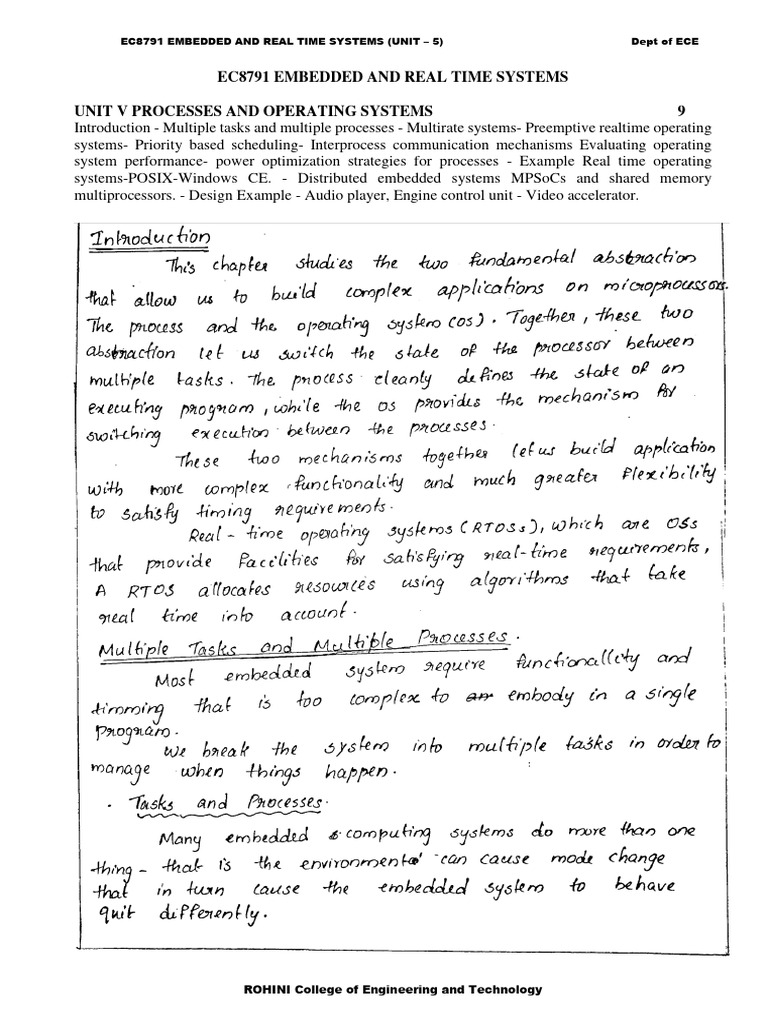 EC8791 EMBEDDED AND REAL TIME SYSTEMS (UNIT – 5) Dept of ECE
EC8791 EMBEDDED AND REAL TIME SYSTEMS
UNIT V PROCESSES AND OPERATING SYSTEMS 9
Introduction - Multiple tasks and multiple processes - Multirate systems- Preemptive realtime operating
systems- Priority based scheduling- Interprocess communication mechanisms Evaluating operating
system performance- power optimization strategies for processes - Example Real time operating
systems-POSIX-Windows CE. - Distributed embedded systems MPSoCs and shared memory
multiprocessors. - Design Example - Audio player, Engine control unit - Video accelerator.
Introduction
This chapter studies the two fundamental abstraction
that allow us to build complex applications on microprocessors.
The process and the operating system (os). Together, these two
abstraction let us switch the state of the processor between
multiple tasks. The process cleanly defines the state of an
executing program, while the os provides the mechanism for
switching execution between the processes.
These two mechanisms together let us build application
with more complex functionality and much greater flexibility
to satisfy timing requirements.
Real-time operating systems (RTOSs), which are OSs
that provide facilities for satisfying real-time requirements,
A RTOS allocates resources using algorithms that take
real time into account.
Multiple Tasks and Multiple Processes.
Most embedded system require functionallity and
timming that is too complex to embody in a single
program.
We break the system into multiple tasks in order to
manage when things happen.
. Tasks and Processes.
Many embedded computing systems do more than one
thing - that is the environment can cause mode change
that in turn cause the embedded system to behave
quit differently.
ROHINI College of Engineering and Technology